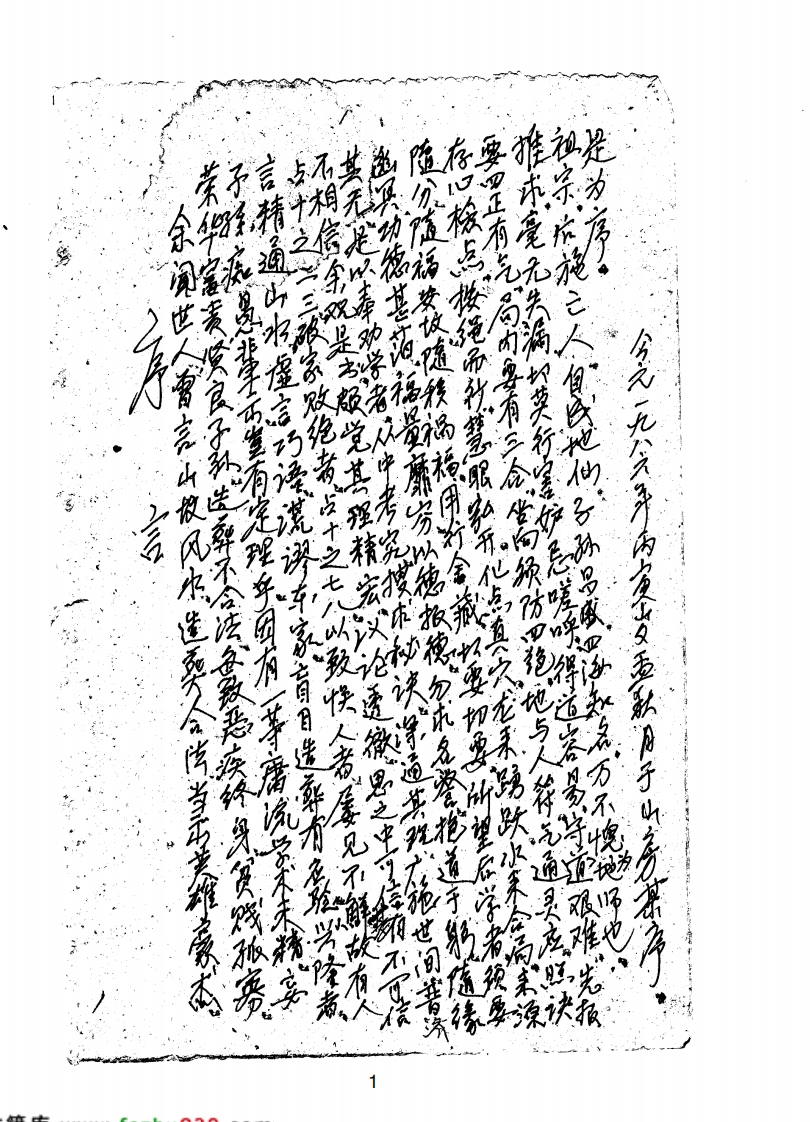 序言
余闻世人曾言山坟风水造葬合法当出英雄豪杰
荣华富贵贤良子孙造葬不合法每致恶疾终身贫贱孤寡
子孙痴愚辈出岂有定理乎因有一等庸流学术未精妄
言精通山水虚言巧语谎谬东家盲目造葬有应验兴隆者
占十之二三破家败绝者占十之七八以致误人者屡见不鲜故有人
不相信余观是书颇觉其理精宏议论透徹思之中可信有不可信
其无是以奉劝学者从中考究搜求秘诀深通其理广施世间普济
幽冥功德甚滔福量靡穷以德报德勿求名营抱道于躬随缘
随分随福安坟随积祸福用行舍藏切要切要所望后学者须要
存心检点按绳而针慧眼开化点真穴龙来踴跃水来合局来源
要四正有气局内要有三合坐向须防四绝地与人符气通灵应照诀
推求毫无失漏切莫行害妒忌嗟呼得道容易守道艰难先报
祖宗后施亡人自成地仙子孙昌盛四海知名万不愧为地师也
是为序。
今元一九八六年丙寅岁孟秋月于山房某序
1